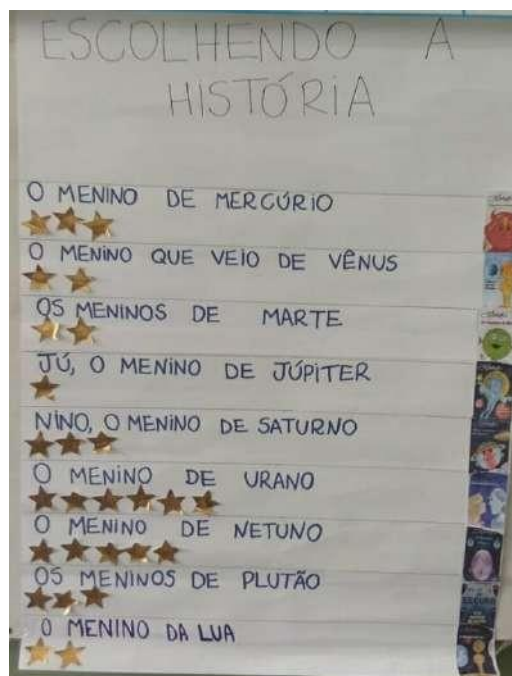 ESCOLHENDO A
HISTÓRIA
O MENINO DE MERCÚRIO
O MENINO QUE VEIO DE VÊNUS
OS MENINOS DE MARTE
JÚ, O MENINO DE JÚPITER
NINO, O MENINO DE SATURNO
O MENINO DE URANO
O MENINO DE NETUNO
OS MENINOS DE PLUTÃO
O MENINO DA LUA